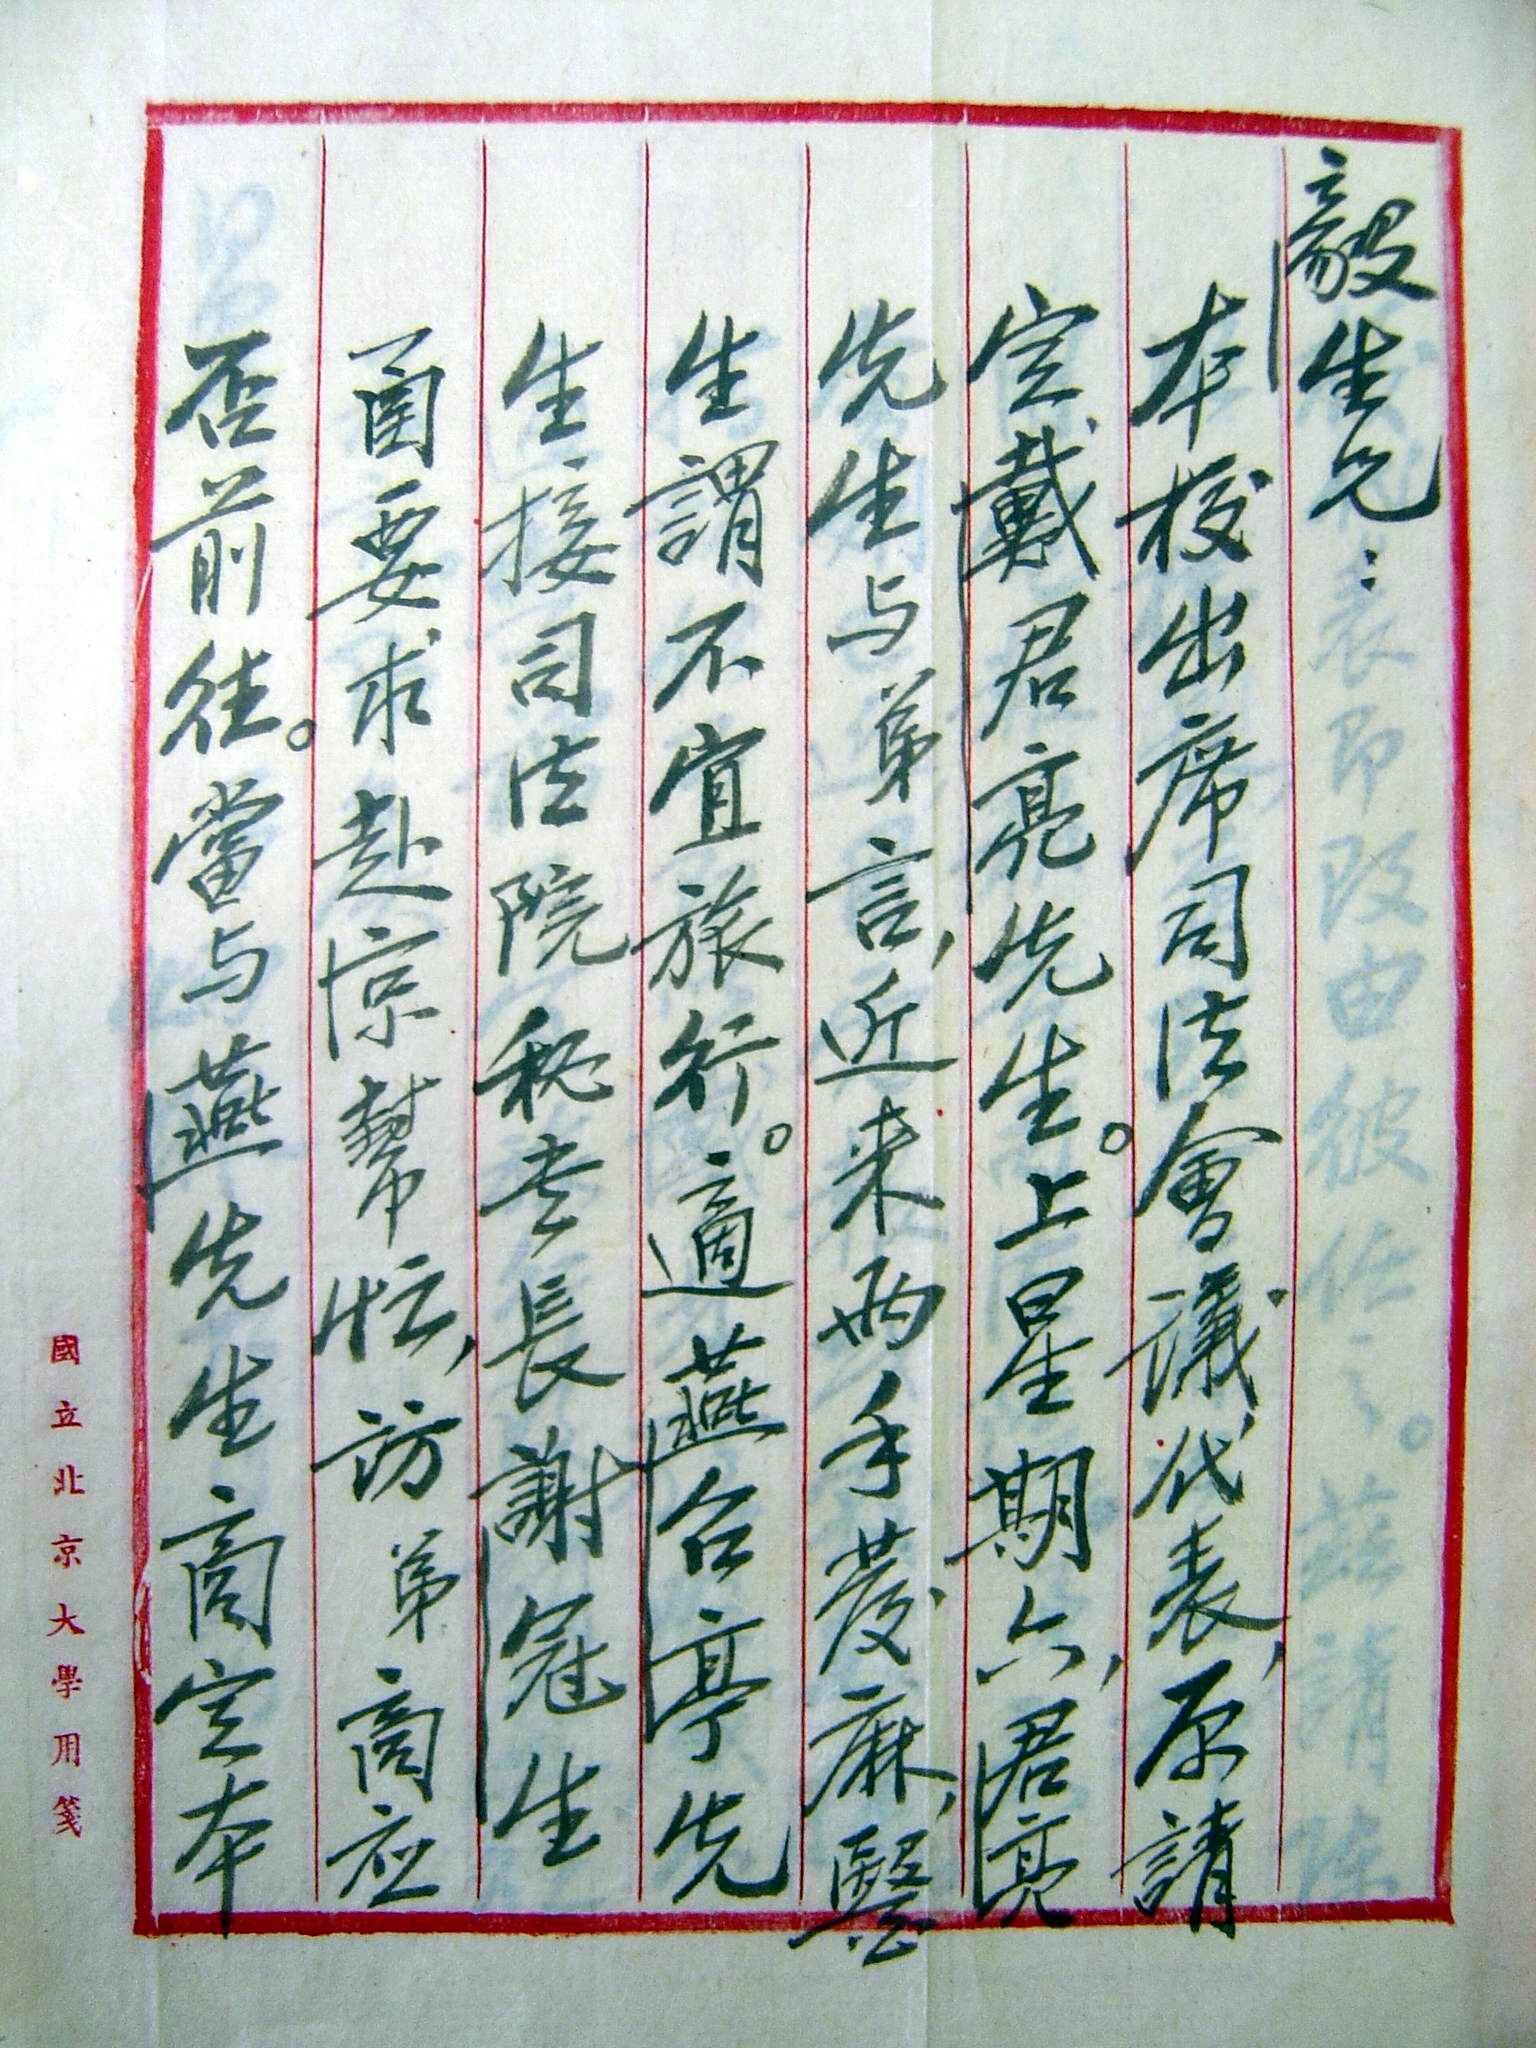 毅生兄：
本校出席司法會議代表，原請
定戴君亮先生。上星期六，君亮
先生与弟言，近来两手發麻，醫
生謂不宜旅行。適燕召亭先
生接司法院秘書長謝冠生
函要求赴京幫忙，訪弟商应
否前往。當与燕先生商定本
國立北京大學用箋